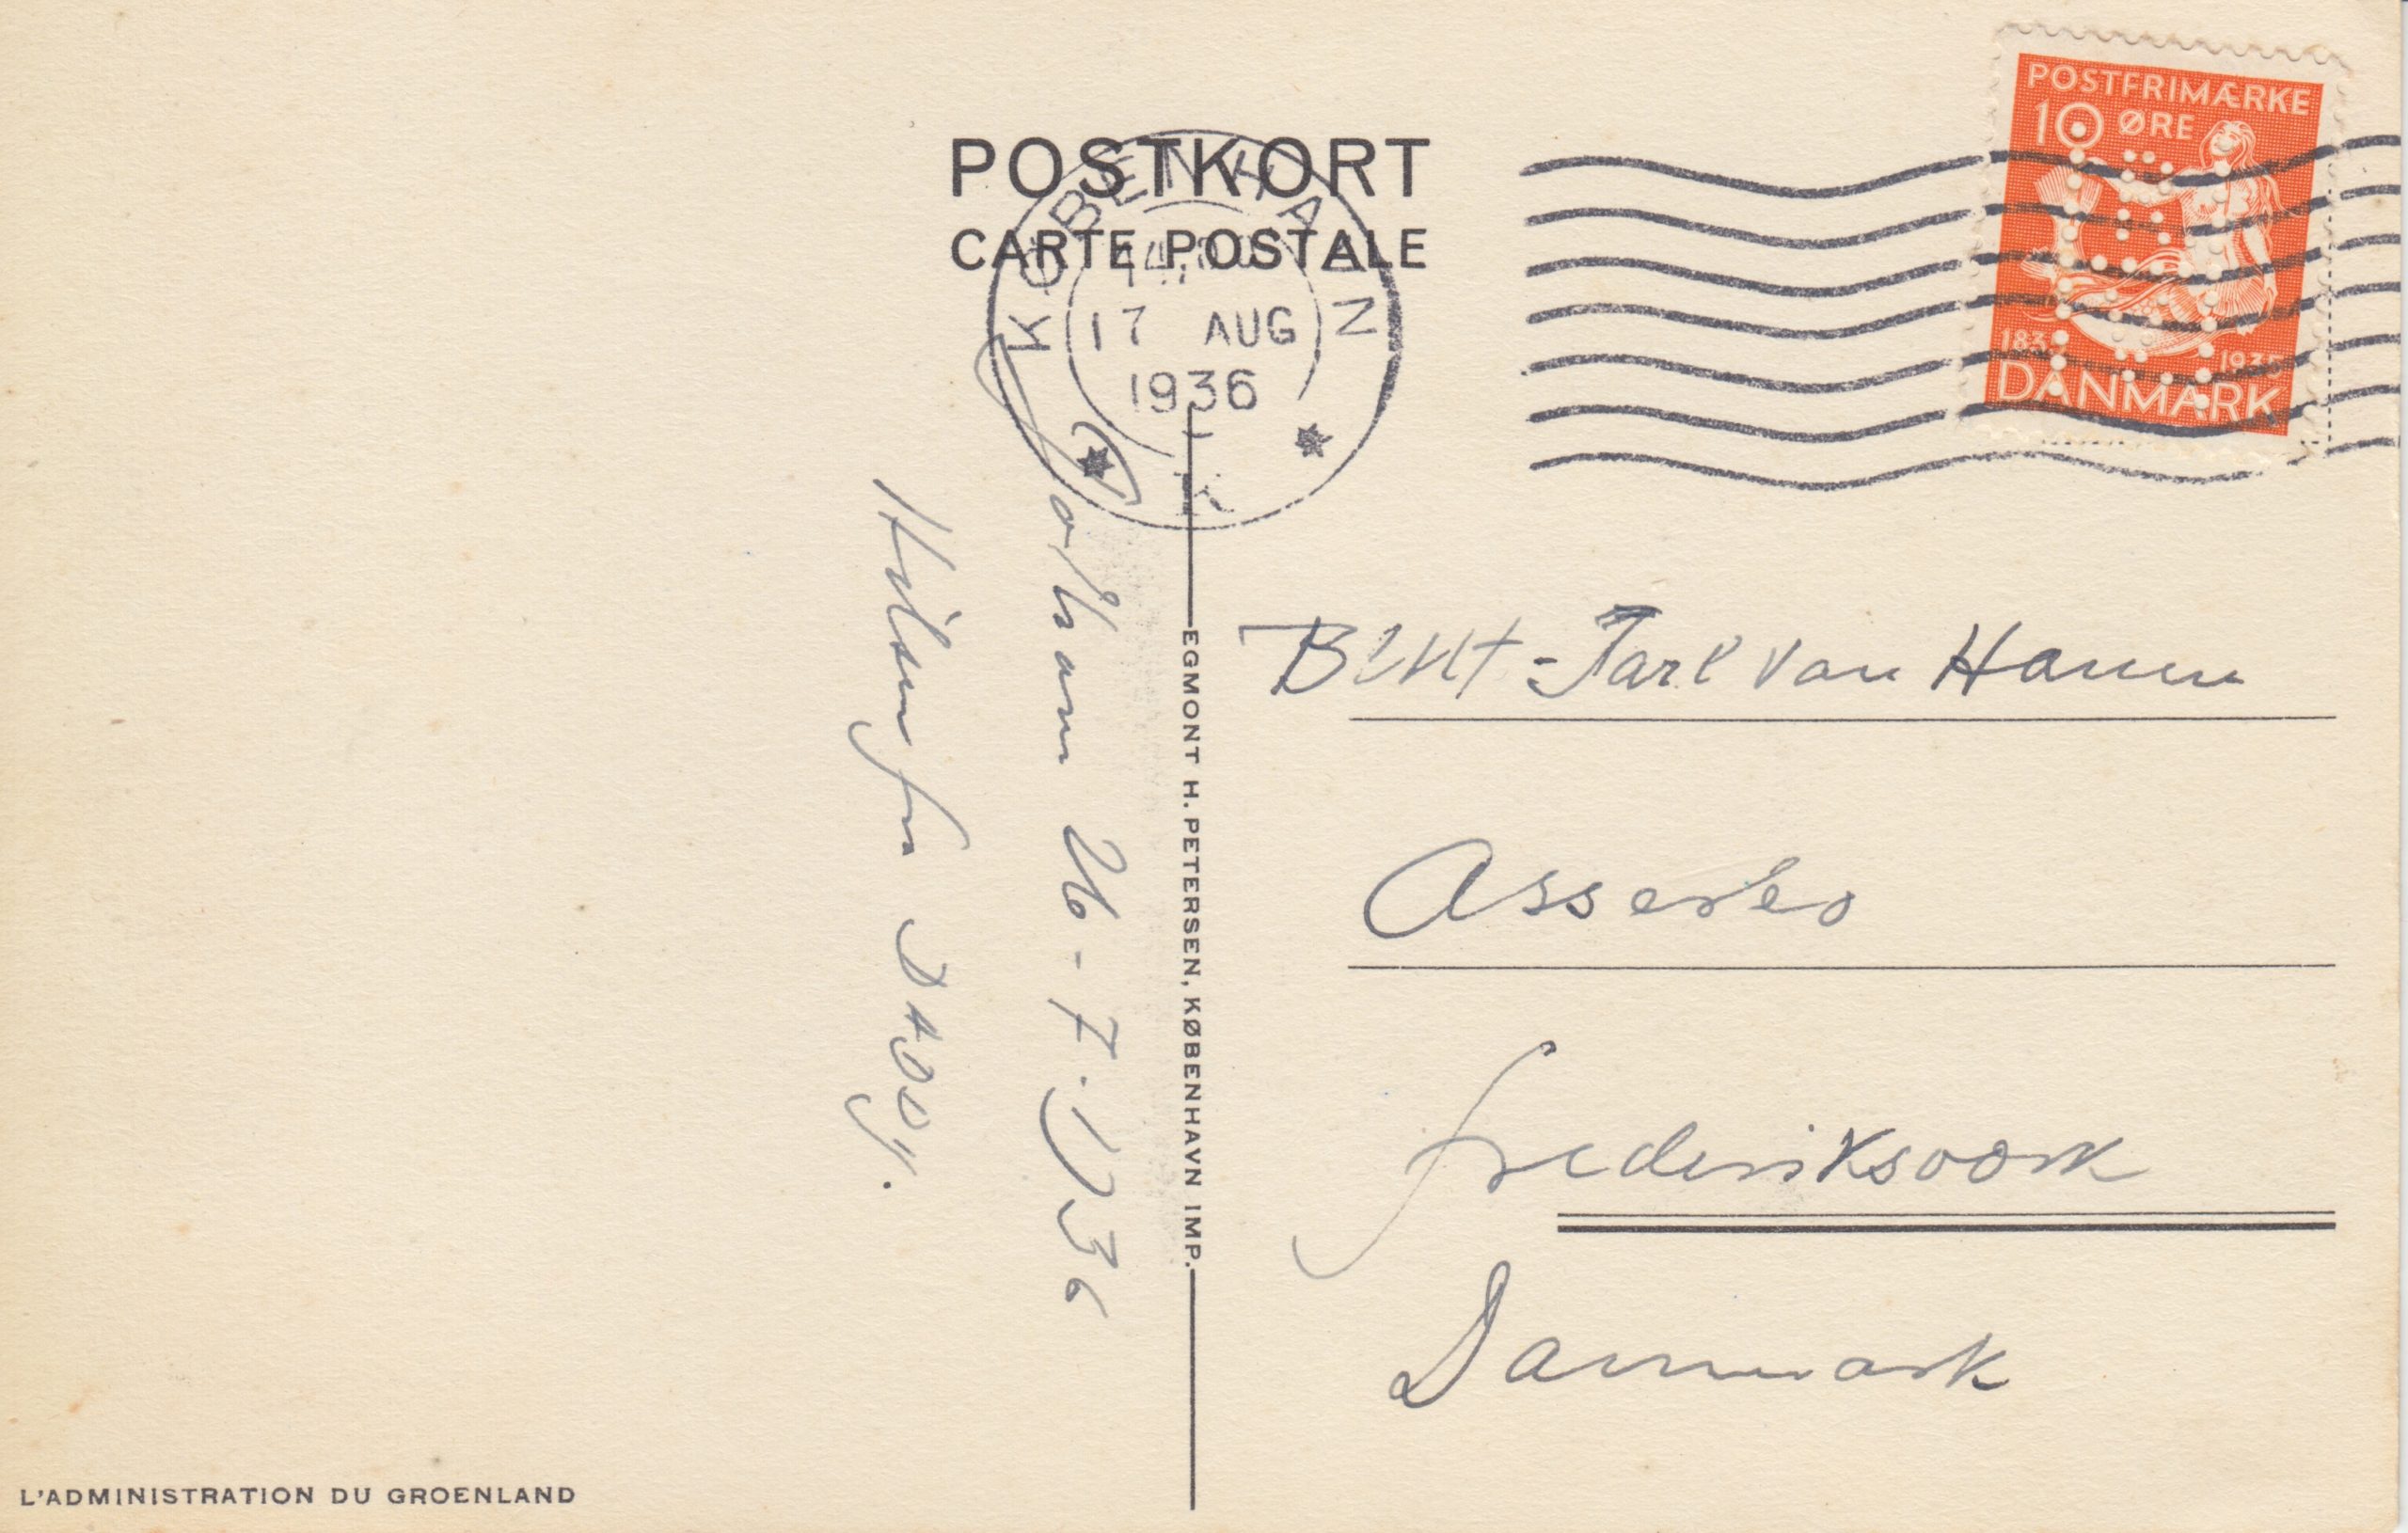 POSTKORT
CARTE POSTALE
KØBENHAVN
17 AUG
1936
K
POSTFRIMÆRKE
10 ØRE
1835 1935
DANMARK
Godthaab 26-7-1936
Hilsen fra DADDY.
EGMONT H. PETERSEN, KØBENHAVN IMP.
Bent-Jarl van Hauen
Asserbo
Frederiksværk
Danmark
L'ADMINISTRATION DU GROENLAND